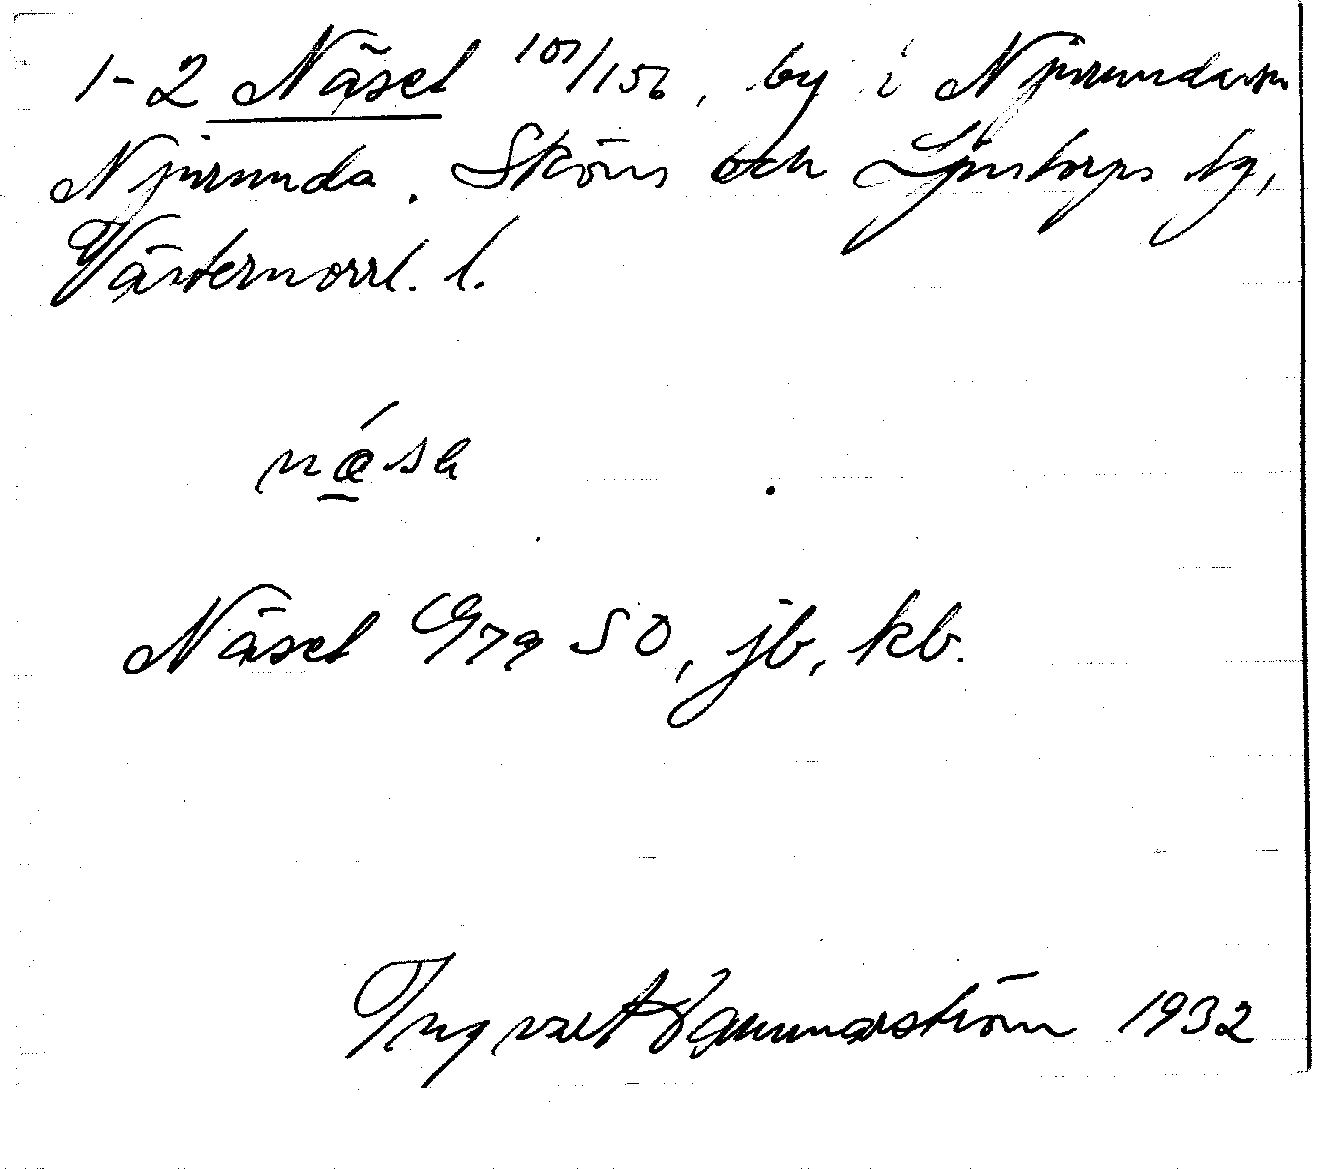 1-2 Näset 107/156, by i Njurunda sn
Njurunda, Sköns och Ljustorps tg,
Västernorrl. l.
næ´sə
Näset G79 SO, jb, kb.
Ingvar Hammarström 1932